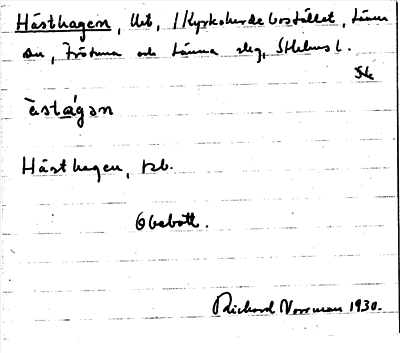 Hästhagen, Ut, i Kyrkoherdebostället, Länn
an, Frötuna och Länna slg, Sthlms l.
àstágan
Hästhagen, tzb.
Obebott.
Richard Norrman 1930.